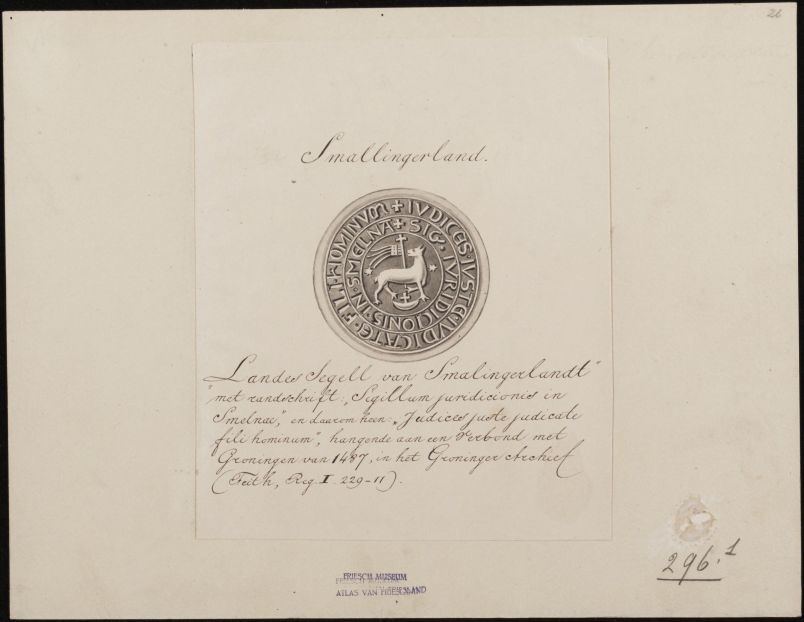 26
Smallingerland.
+ IVDICES · IVSTE · IVDICATE · FILI · HOMINVM
+ SIG · IVRIDICIONIS · IN · SMELNA
„Landes Segell van Smalingerlandt"
"met randschrift: „Segillum juridicionis in
Smelnae", en daarom heen: „Judices juste judicate
fili hominum", hangende aan een Verbond met
Groningen van 1487, in het Groninger Archief
(Feith, Reg. I 229-11).
296.1
FRIESCH MUSEUM
ATLAS VAN FRIESLAND